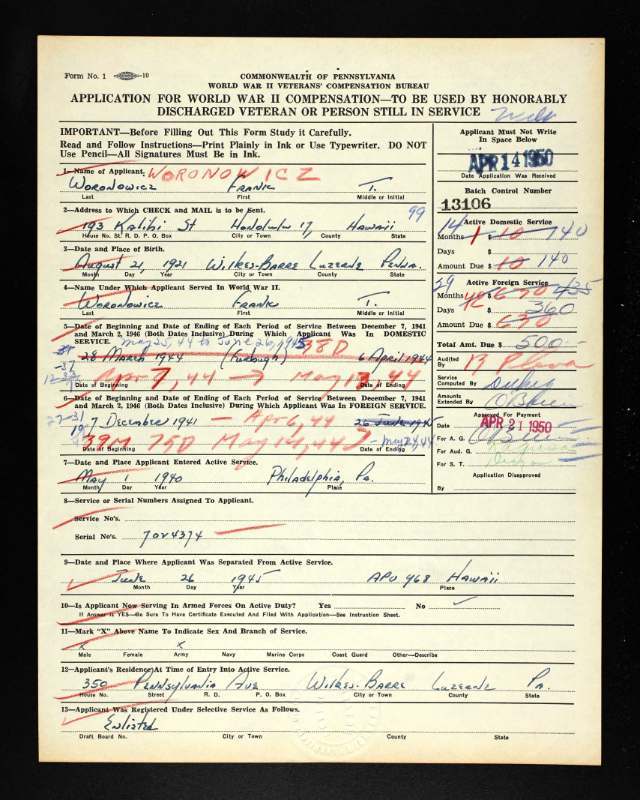 Form No. 1 10
COMMONWEALTH OF PENNSYLVANIA
WORLD WAR II VETERANS' COMPENSATION BUREAU
APPLICATION FOR WORLD WAR II COMPENSATION—TO BE USED BY HONORABLY
DISCHARGED VETERAN OR PERSON STILL IN SERVICE
IMPORTANT—Before Filling Out This Form Study it Carefully.
Read and Follow Instructions—Print Plainly in Ink or Use Typewriter. DO NOT
Use Pencil—All Signatures Must Be in Ink.
Applicant Must Not Write
In Space Below
APR 14 1950
Date Application Was Received
Batch Control Number
13106
1—Name of Applicant. WORONOWICZ
WORONOWICZ FRANK T.
Last First Middle or Initial
2—Address to Which CHECK and MAIL is to be Sent. 99
193 Kalihi St Honolulu 17, Hawaii
House No. St. R. D. P. O. Box City or Town County State
3—Date and Place of Birth.
August 21, 1921 Wilkes-Barre Luzerne Penna.
Month Day Year City or Town County State
4—Name Under Which Applicant Served In World War II.
Woronowicz Frank T.
Last First Middle or Initial
5—Date of Beginning and Date of Ending of Each Period of Service Between December 7, 1941
and March 2, 1946 (Both Dates Inclusive) During Which Applicant Was In DOMESTIC
SERVICE. May 25, 44 to June 26, 1945 38D
28 March 1944 (Furlough) 6 April 1944
Apr 7, 44 → May 13, 44
Date of Beginning Date of Ending
6—Date of Beginning and Date of Ending of Each Period of Service Between December 7, 1941
and March 2, 1946 (Both Dates Inclusive) During Which Applicant Was In FOREIGN SERVICE.
7 December 1941 — Apr 6, 44 26 June 1945
39M 75D May 14, 44 - May 24, 44
Date of Beginning Date of Ending
7—Date and Place Applicant Entered Active Service.
May 1 1940 Philadelphia, Pa.
Month Day Year Place
8—Service or Serial Numbers Assigned To Applicant.
Service No's.
Serial No's. 7024374
9—Date and Place Where Applicant Was Separated From Active Service.
June 26 1945 APO 468 Hawaii
Month Day Year Place
10—Is Applicant Now Serving In Armed Forces On Active Duty? Yes No ✓
If Answer is YES—Be Sure To Have Certificate Executed And Filed With Application—See Instruction Sheet.
11—Mark "X" Above Name To Indicate Sex and Branch of Service.
X X
Male Female Army Navy Marine Corps Coast Guard Other—Describe
12—Applicant's Residence At Time of Entry Into Active Service.
350 Pennsylvania Ave Wilkes-Barre Luzerne Pa.
House No. Street R. D. P. O. Box City or Town County State
13—Applicant Was Registered Under Selective Service As Follows.
Enlisted
Draft Board No. City or Town County State
Active Domestic Service
14
Months 1 $ 10 140
Days $
Amount Due $ 10 140
Active Foreign Service
Months $
Days $ 360
Amount Due $ 630
Total Amt. Due $ 500
Audited
By
Service
Computed By
Amounts
Extended By O'Brien
Approved For Payment
Date APR 21 1950
For A. G.
For Aud. G.
For S. T.
Application Disapproved
By